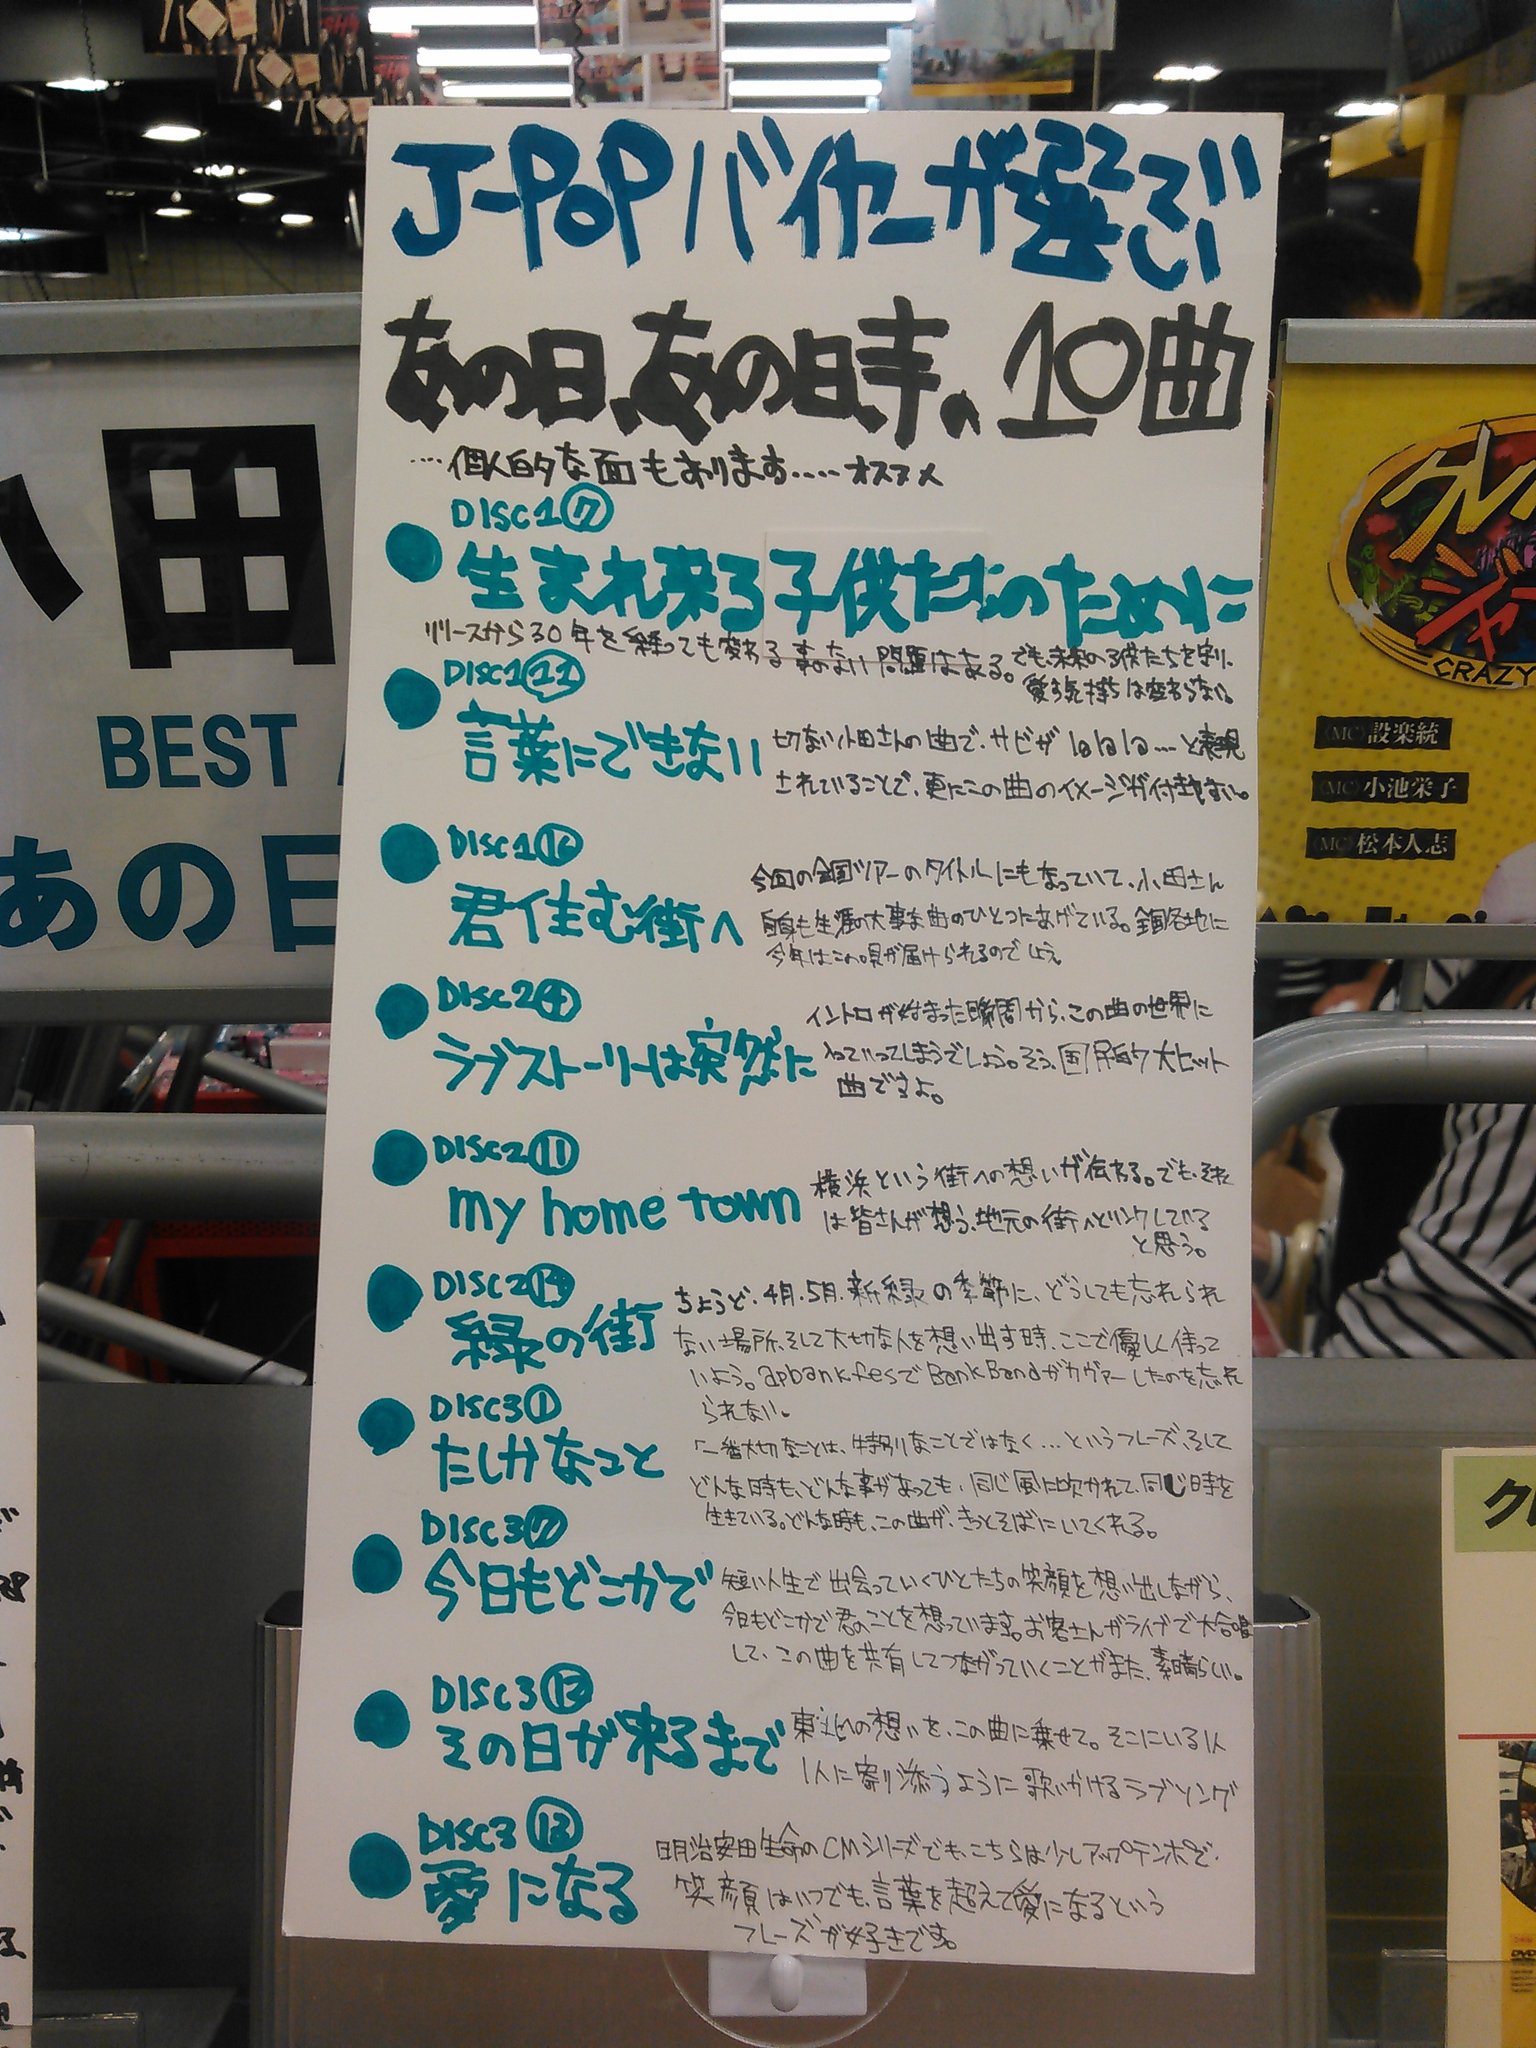 J-POPバイヤーが選ぶ
あの日、あの時、の10曲
‥‥個人的な面もあります‥‥‥オススメ
DISC1⑦
生まれ来る子供たちのために
リリースから30年を経っても変わる事のない問題はある。でも、未来の子供たちを守り、
愛する気持ちは変わらない。
DISC1⑪
言葉にできない
切ない小田さんの曲で、サビが lalala‥‥と表現
されていることで、更にこの曲のイメージが付きない。
DISC1⑯
君住む街へ
今回の全国ツアーのタイトルにもなっていて、小田さん
自身も生涯の大事な曲のひとつにあげている。全国各地に
今年はこの唄が届けられるのでしょう。
DISC2④
ラブストーリーは突然に
イントロが始まった瞬間から、この曲の世界に
入っていってしまうでしょう。そう、国民的大ヒット
曲ですよ。
DISC2⑪
my home town
横浜という街への想いが伝わる。でも、それ
は皆さんが想う、地元の街へとリンクしている
と思う。
DISC2⑭
緑の街
ちょうど、4月、5月、新緑の季節に、どうしても忘れられ
ない場所、そして大切な人を想い出す時、ここで優しく待って
いよう。apbank fesでBank Bandがカヴァーしたのを忘れ
られない。
DISC3①
たしかなこと
「一番大切なことは、特別なことではなく…というフレーズ、そして
どんな時も、どんな事があっても、同じ風に吹かれて、同じ時を
生きている。どんな時も、この曲が、きっとそばにいてくれる。
DISC3⑦
今日もどこかで
短い人生で出会っていくひとたちの笑顔を想い出しながら、
今日もどこかで君のことを想っています。お客さんがライブで大合唱
して、この曲を共有してつながっていくことがまた、素晴らしい。
DISC3⑫
その日が来るまで
東北への想いを、この曲に乗せて。そこにいる1人
1人に寄り添うように歌いかけるラブソング
DISC3⑬
愛になる
明治安田生命のCMシリーズでも、こちらは少しアップテンポで、
笑顔はいつでも、言葉を超えて愛になるという
フレーズが好きです。
小田
BEST
あの日
CRAZY
〈MC〉設楽統
〈MC〉小池栄子
〈MC〉松本人志
DVD